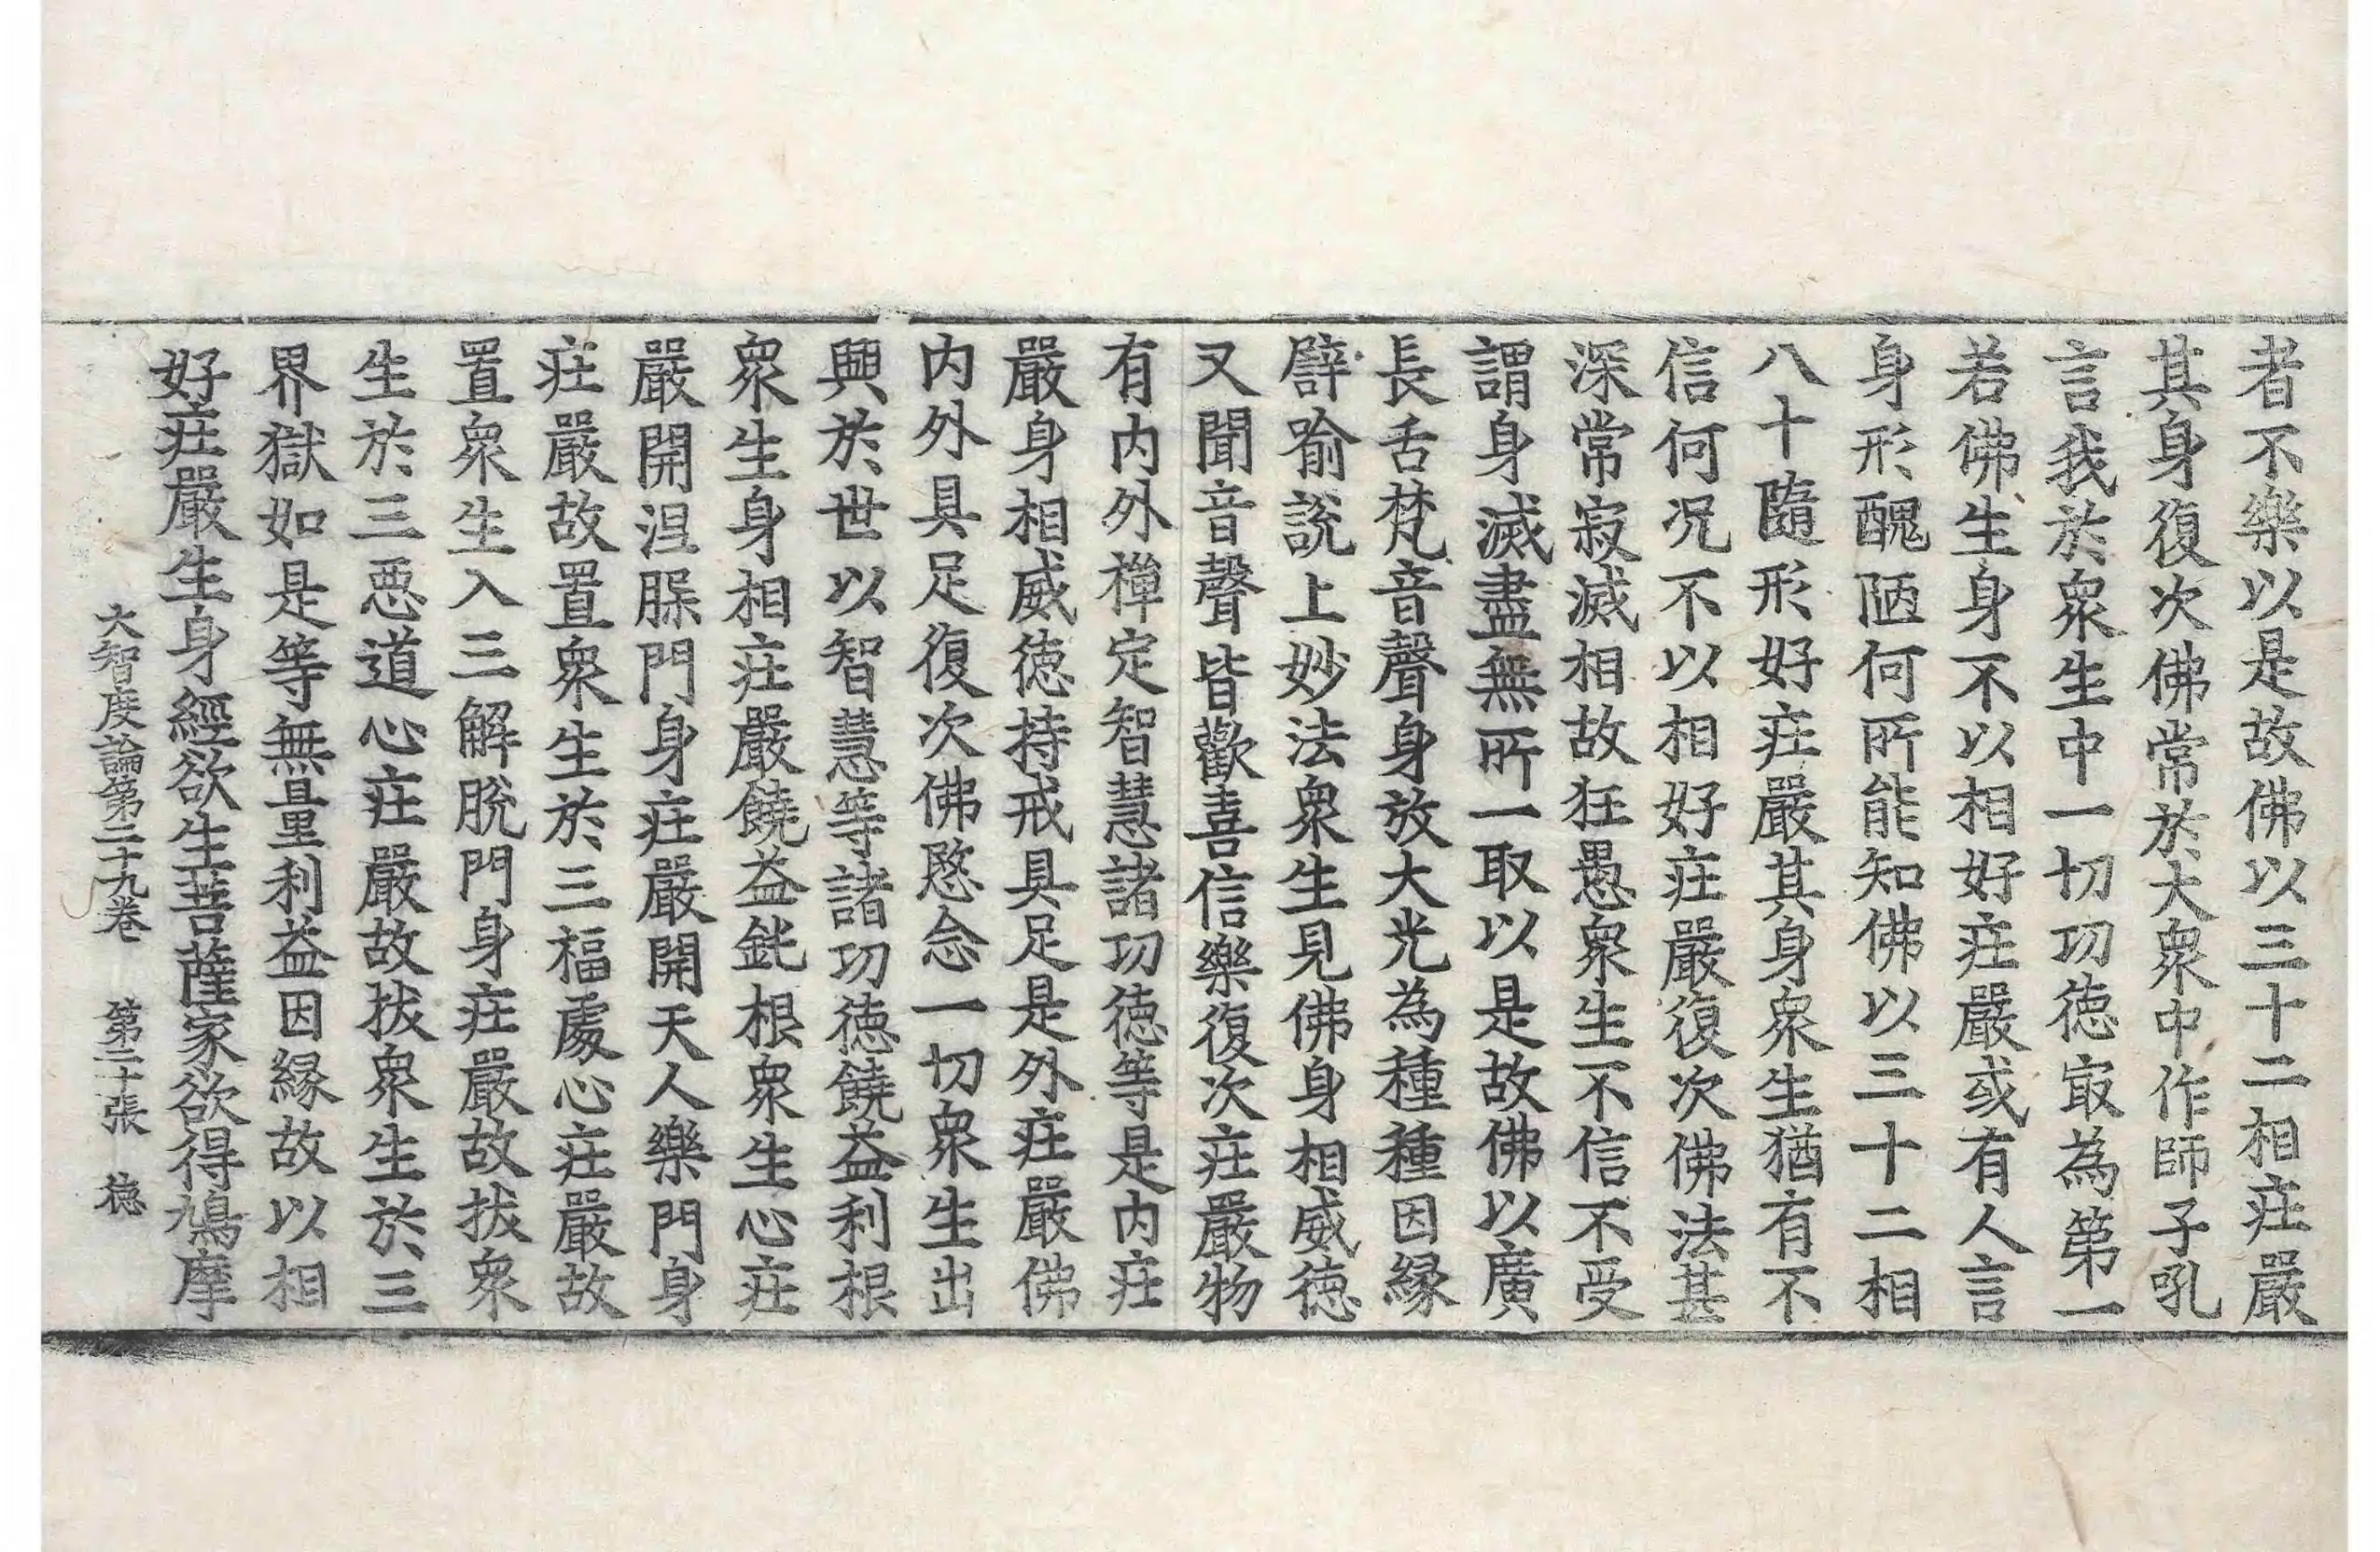 者不樂以是故佛以三十二相莊嚴
其身復次佛常於大衆中作師子吼
言我於衆生中一切功德冣為第一
若佛生身不以相好莊嚴或有人言
身形醜陋何所能知佛以三十二相
八十隨形好莊嚴其身衆生猶有不
信何況不以相好莊嚴復次佛法甚
深常寂滅相故狂愚衆生不信不受
謂身滅盡無所一取以是故佛以廣
長舌梵音聲身放大光為種種因縁
譬喻說上妙法衆生見佛身相威德
又聞音聲皆歡喜信樂復次莊嚴物
有内外禪定智慧諸功德等是内莊
嚴身相威德持戒具足是外莊嚴佛
内外具足復次佛愍念一切衆生出
興於世以智慧等諸功德饒益利根
衆生身相莊嚴饒益鈍根衆生心莊
嚴開涅槃門身莊嚴開天人樂門身
莊嚴故置衆生於三福處心莊嚴故
置衆生入三解脫門身莊嚴故拔衆
生於三惡道心莊嚴故拔衆生於三
界獄如是等無量利益因縁故以相
好莊嚴生身經欲生菩薩家欲得鳩摩
大智度論第二十九卷 第二十張 德